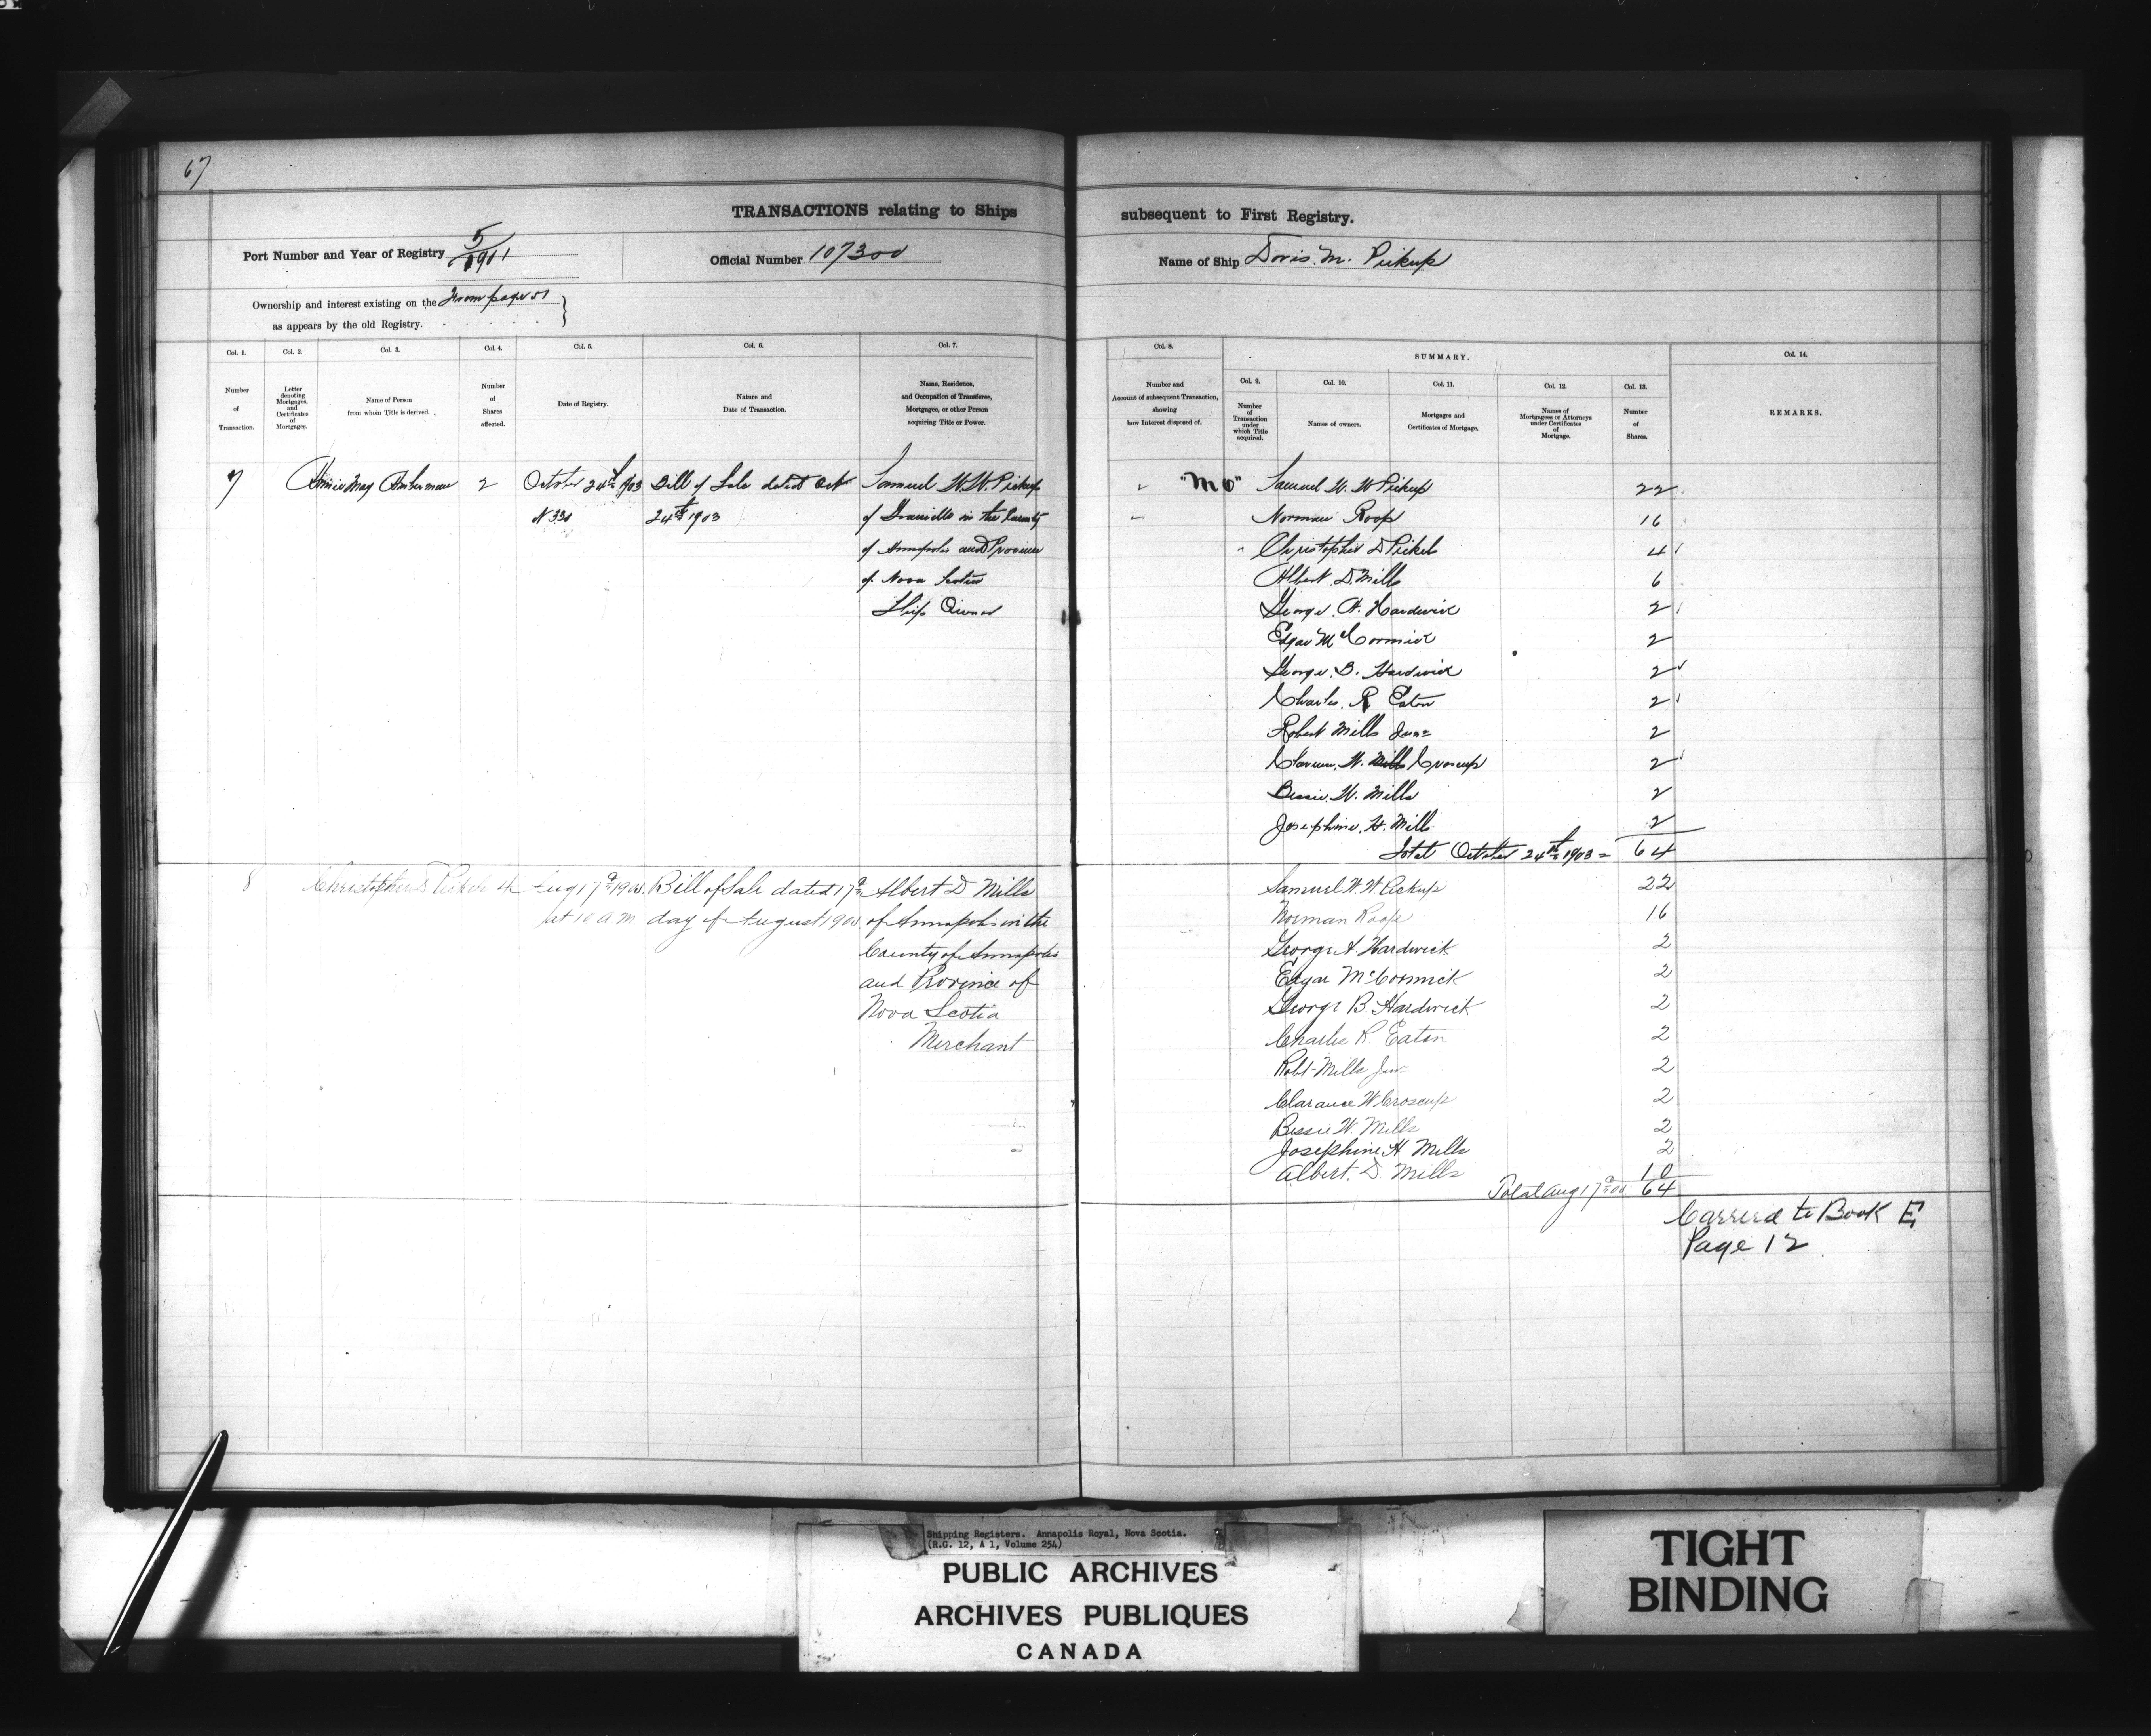 67
TRANSACTIONS relating to Ships subsequent to First Registry.
Port Number and Year of Registry 5/1901
Official Number 107300
Name of Ship Doris. M. Pickup
Ownership and interest existing on the From page 51
as appears by the old Registry.
Col. 1.
Number
of
Transaction.
Col. 2.
Letter
denoting
Mortgages,
and
Certificates
of
Mortgages.
Col. 3.
Name of Person
from whom Title is derived.
Col. 4.
Number
of
Shares
affected.
Col. 5.
Date of Registry.
Col. 6.
Nature and
Date of Transaction.
Col. 7.
Name, Residence,
and Occupation of Transferee,
Mortgagee, or other Person
acquiring Title or Power.
Col. 8.
Number and
Account of subsequent Transaction,
showing
how Interest disposed of.
SUMMARY.
Col. 9.
Number
of
Transaction
under
which Title
acquired.
Col. 10.
Names of owners.
Col. 11.
Mortgages and
Certificates of Mortgage.
Col. 12.
Names of
Mortgagees or Attorneys
under Certificates
of
Mortgage.
Col. 13.
Number
of
Shares.
Col. 14.
REMARKS.
7
May
2
October 24th 1903
Bill of Sale dated Oct
24th 1903
Samuel W. W. Pickup
of Granville in the County
of Annapolis and Province
of Nova Scotia
Ship Owner
Samuel W. W Pickup 22
Norman Roop 16
Christopher D Pickels 4
Albert. D. Mills 6
George. A. Hardwick 2
Edgar McCormick 2
George. B. Hardwick 2
Charles. R Eaton 2
Robert Mills Junr 2
W. Mills Croscup 2
Bessie. W. Mills 2
Josephine. H. Mills 2
Total October 24th 1903 = 64
8
Christopher D Pickels 4
Aug 17th
at 10 a m
Bill of Sale dated 17th
day of August
Albert D Mills
of Annapolis in the
County of Annapolis
and Province of
Nova Scotia
Merchant
Samuel W W Pickup 22
Norman Roop 16
George A Hardwick 2
Edgar McCormick 2
George B. Hardwick 2
Charles R. Eaton 2
Robt Mills Junr 2
Clarance W Croscup 2
Bessie W. Mills 2
Josephine H Mills 2
Albert. D. Mills 10
Total Aug 17th 64
Carrerd to Book E
Page 12
Shipping Registers. Annapolis Royal, Nova Scotia.
(R.G. 12, A 1, Volume 254)
PUBLIC ARCHIVES
ARCHIVES PUBLIQUES
CANADA
TIGHT
BINDING